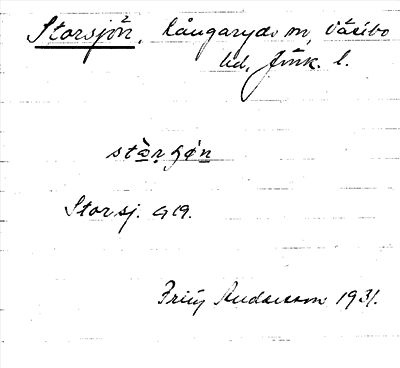 Storsjön, Långaryds m, Västbo
hd, Jönk. l.
stòrʂɟøn
Storsj. G19.
Frity Andersson 1931.